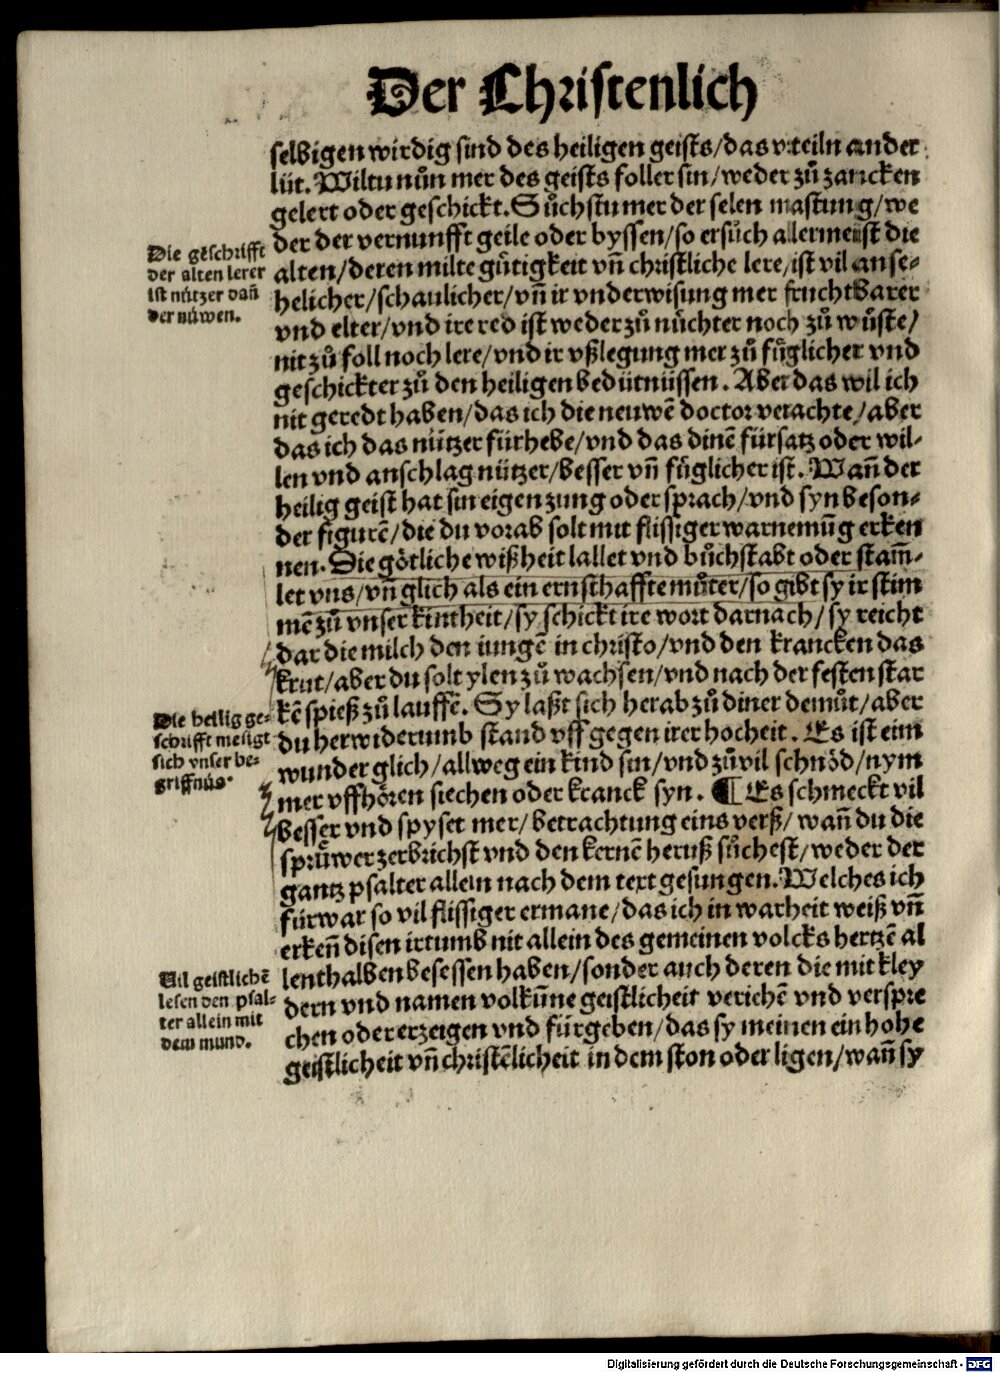 Der Christenlich
selbigen wirdig sind des heiligen geists/das vrteiln ander
lüt. Wiltu nůn mer des geists foller sin/weder zů zancken
gelert oder geschickt. Sůchstu mer der selen mastung/we
der der vernunfft geile oder byssen/so ersůch allermeist die
Die geschrifft
der alten lerer
ist nützer dañ
der nüwen.
alten/deren milte gůtigkeit vñ christliche lere/ist vil anse-
helicher/schaulicher/vñ ir vnderwisung mer fruchtbarer
vnd elter/vnd ire red ist weder zů nůchter noch zů wůste/
nit zů foll noch lere/vnd ir vßlegung mer zů fůglicher vnd
geschickter zů den heiligen bedütnüssen. Aber das wil ich
nit geredt haben/das ich die neuwẽ doctor verachte/aber
das ich das nützer fürhebe/vnd das dinẽ fürsatz oder wil-
len vnd anschlag nützer/besser vñ fůglicher ist. Wañ der
heilig geist hat sin eigen zung oder sprach/vnd syn beson-
der figurẽ/die du vorab solt mit flissiger warnemũg erken
nen. Die götliche wißheit lallet vnd bůchstabt oder stam̃-
let vns/vñ glich als ein ernsthaffte můter/so gibt sy ir stim
mẽ zů vnser kintheit/sy schickt ire wort darnach/sy reicht
dar die milch den iungẽ in christo/vnd den krancken das
krut/aber du solt ylen zů wachsen/vnd nach der festen star
kẽ spieß zů lauffẽ. Sy laßt sich herab zů diner demůt/aber
Die heilig ge-
schrifft mesigt
sich vnser be-
griffnüs.
du herwiderumb stand vff gegen irer hocheit. Es ist eim
wunder glich/allweg ein kind sin/vnd zůvil schnöd/nym
mer vffhören siechen oder kranck syn. ¶ Es schmeckt vil
besser vnd spyset mer/betrachtung eins verß/wañ du die
sprüwer zerbrichst vnd den kernẽ heruß sůchest/weder der
gantz psalter allein nach dem text gesungen. Welches ich
fürwar so vil flissiger ermane/das ich in warheit weiß vñ
erkeñ disen irtumb nit allein des gemeinen volcks hertzẽ al
lenthalben besessen haben/sonder auch deren die mit kley
Vil geistlichẽ
lesen den psal-
ter allein mit
dem mund.
dern vnd namen volkũne geistlicheit veriehẽ vnd verspre
chen oder erzeigen vnd fürgeben/das sy meinen ein hohe
geistlicheit vñ christẽlicheit in dem ston oder ligen/wañ sy
Digitalisierung gefördert durch die Deutsche Forschungsgemeinschaft - DFG